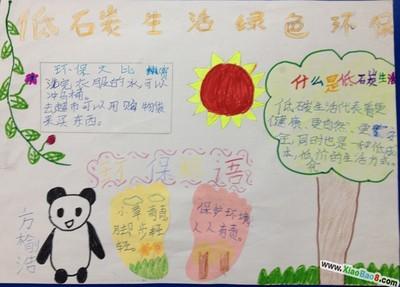 低碳生活绿色环保
环保大比
洗完衣服的水可以
冲马桶。
去超市可以用购物袋
来买东西。
什么是低碳生活
低碳生活代表着更
健康、更自然、更安
全,同时也是一种低成
本,低价的生活方式。
保 语
小草有
脚步轻
轻。
保护环境
人人有责。
方榆浩
www.XiaoBao8.com